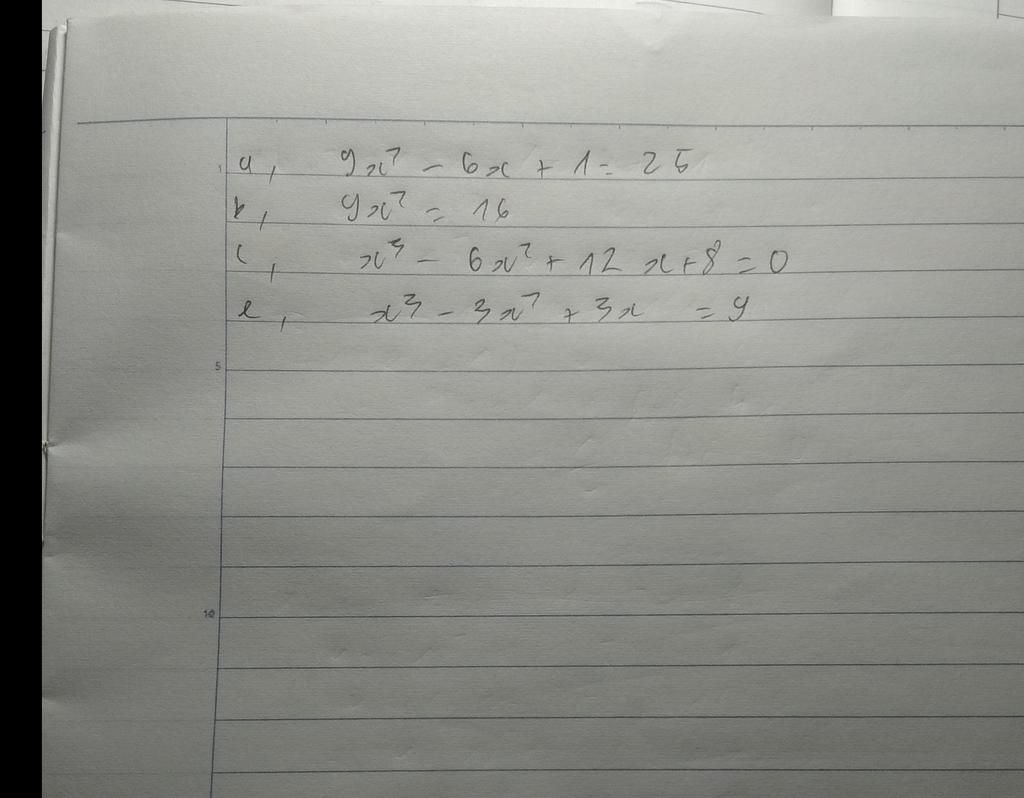 1
a, 9x² - 6x + 1 = 25
b, 9x² = 16
c, x³ - 6x² + 12x + 8 = 0
e, x³ - 3x² + 3x = 9
5
10